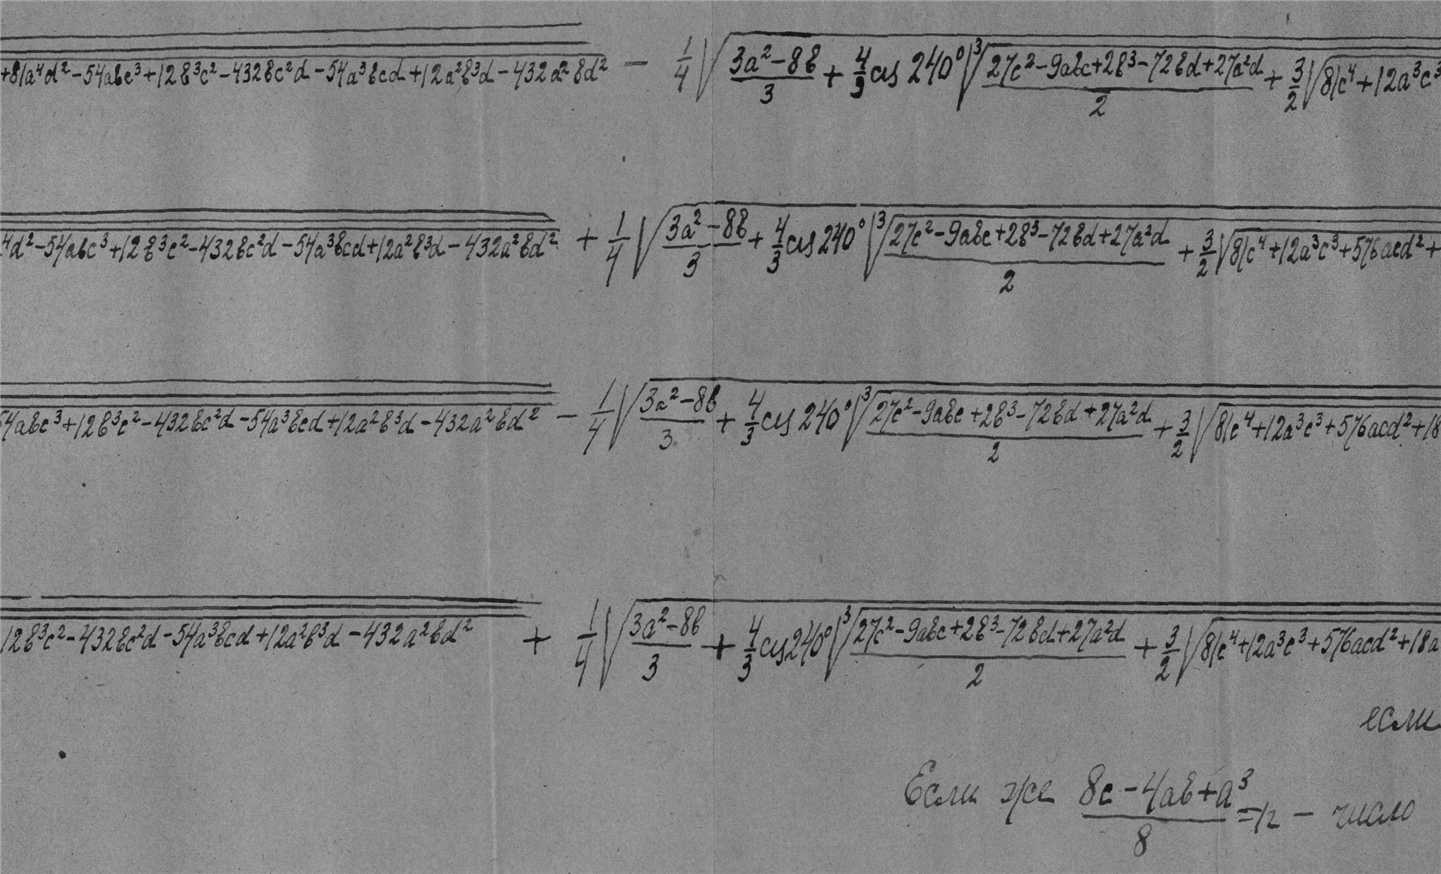 +81a⁴d² − 54abc³ + 12b³c² − 432bc²d − 54a³bcd + 12a²b³d − 432a²bd² − 1/4 √(3a²−8b)/3 + 4/3 cis 240° ³√(27c²−9abc+2b³−72bd+27a²d)/2 + 3/2 √81c⁴+12a³c³
⁴d² − 54abc³ + 12b³c² − 432bc²d − 54a³bcd + 12a²b³d − 432a²bd² + 1/4 √(3a²−8b)/3 + 4/3 cis 240° ³√(27c²−9abc+2b³−72bd+27a²d)/2 + 3/2 √81c⁴+12a³c³+576acd²+
54abc³ + 12b³c² − 432bc²d − 54a³bcd + 12a²b³d − 432a²bd² − 1/4 √(3a²−8b)/3 + 4/3 cis 240° ³√(27c²−9abc+2b³−72bd+27a²d)/2 + 3/2 √81c⁴+12a³c³+576acd²+18
12b³c² − 432bc²d − 54a³bcd + 12a²b³d − 432a²bd² + 1/4 √(3a²−8b)/3 + 4/3 cis 240° ³√(27c²−9abc+2b³−72bd+27a²d)/2 + 3/2 √81c⁴+12a³c³+576acd²+18a
если
Если же (8c−4ab+a³)/8 = n − число